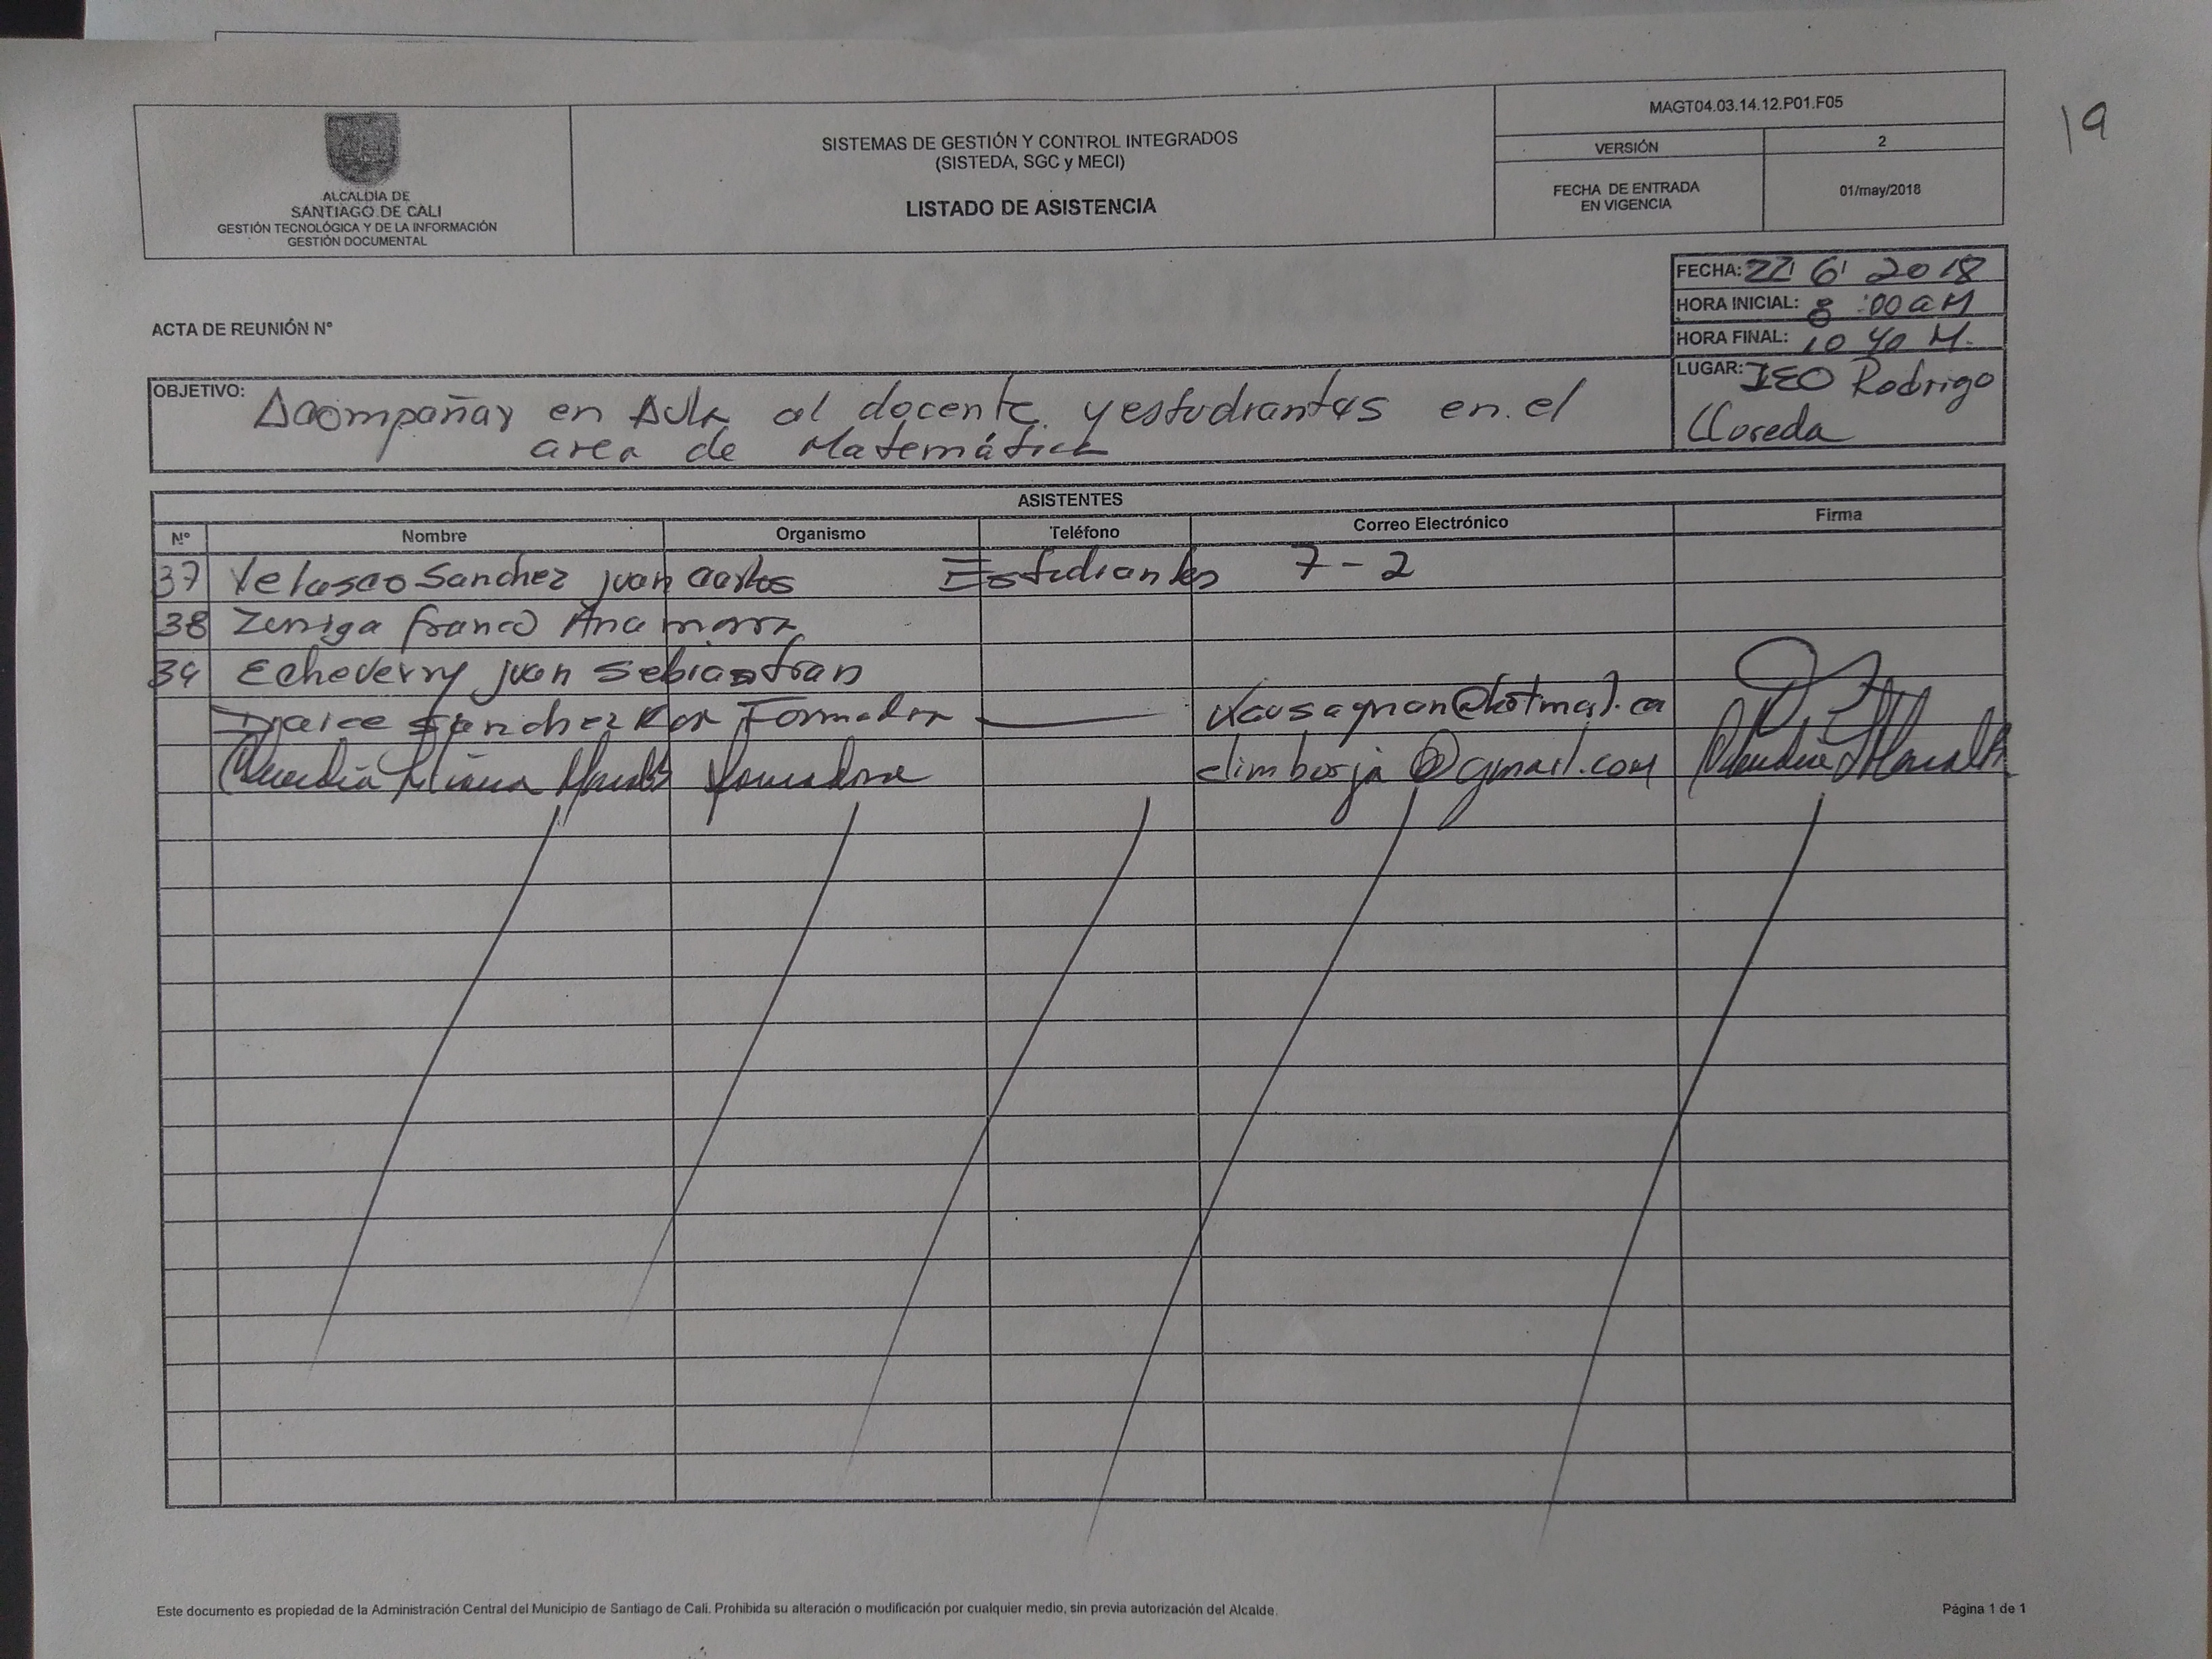 19
ALCALDÍA DE
SANTIAGO DE CALI
GESTIÓN TECNOLÓGICA Y DE LA INFORMACIÓN
GESTIÓN DOCUMENTAL
SISTEMAS DE GESTIÓN Y CONTROL INTEGRADOS
(SISTEDA, SGC y MECI)
LISTADO DE ASISTENCIA
MAGT04.03.14.12.P01.F05
VERSIÓN 2
FECHA DE ENTRADA
EN VIGENCIA
01/may/2018
FECHA: 22 6 2018
HORA INICIAL: 8:00 a M
HORA FINAL: 10 40 M.
ACTA DE REUNIÓN N°
LUGAR: IEO Rodrigo
Lloreda
OBJETIVO: Acompañar en Aula al docente y estudiantes en el
area de Matemática
ASISTENTES
N° Nombre Organismo Teléfono Correo Electrónico Firma
37 Velasco Sanchez juan Carlos Estudiantes 7-2
38 Zuniga franco Ana
39 Echeverry juan
Sanchez Formador
Claudia Liliana Formadora climborja@gmail.com
Este documento es propiedad de la Administración Central del Municipio de Santiago de Cali. Prohibida su alteración o modificación por cualquier medio, sin previa autorización del Alcalde.
Página 1 de 1